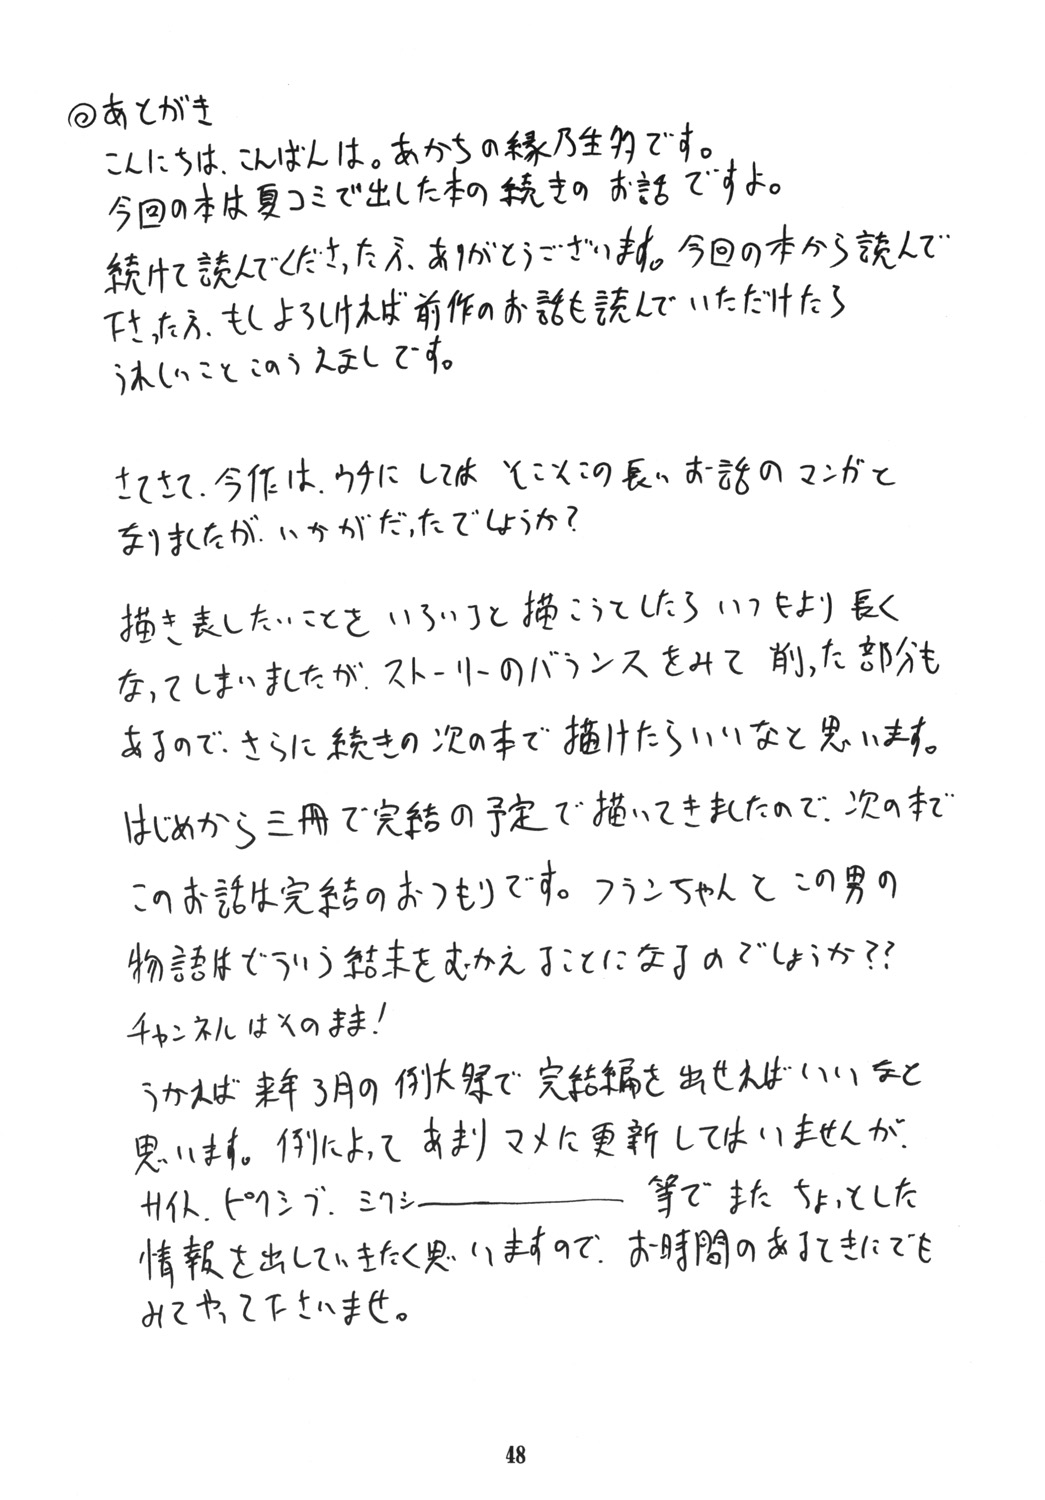 ◎あとがき
こんにちは、こんばんは。あかちの縁乃生多です。
今回の本は夏コミで出した本の続きの お話 ですよ。
続けて読んでくださった方、ありがとうございます。今回の本から読んで
下さった方、もしよろしければ前作のお話も読んでいただけたら
うれしいことこのうえましです。
さてさて、今作は、ウチにしては そこそこの長い お話の マンガと
なりましたが、いかがだったでしょうか?
描き表したいことを いろいろと 描こうとしたら いつもより 長く
なってしまいましたが、ストーリーのバランスをみて 削った部分も
あるので、さらに続きの次の本で描けたらいいなと思います。
はじめから三冊で完結の予定で描いてきましたので、次の本で
このお話は完結のおつもりです。フランちゃんと この男の
物語はどういう結末をむかえることになるのでしょうか??
チャンネルはそのまま!
うかれば 来年3月の 例大祭で 完結編を 出せればいいなと
思います。例によって あまり マメに更新 してはいませんが、
サイト、ピクシブ、ミクシー――――― 等で また ちょっとした
情報を出していきたく思いますので、お時間のあるときにでも
みてやって下さいませ。
48